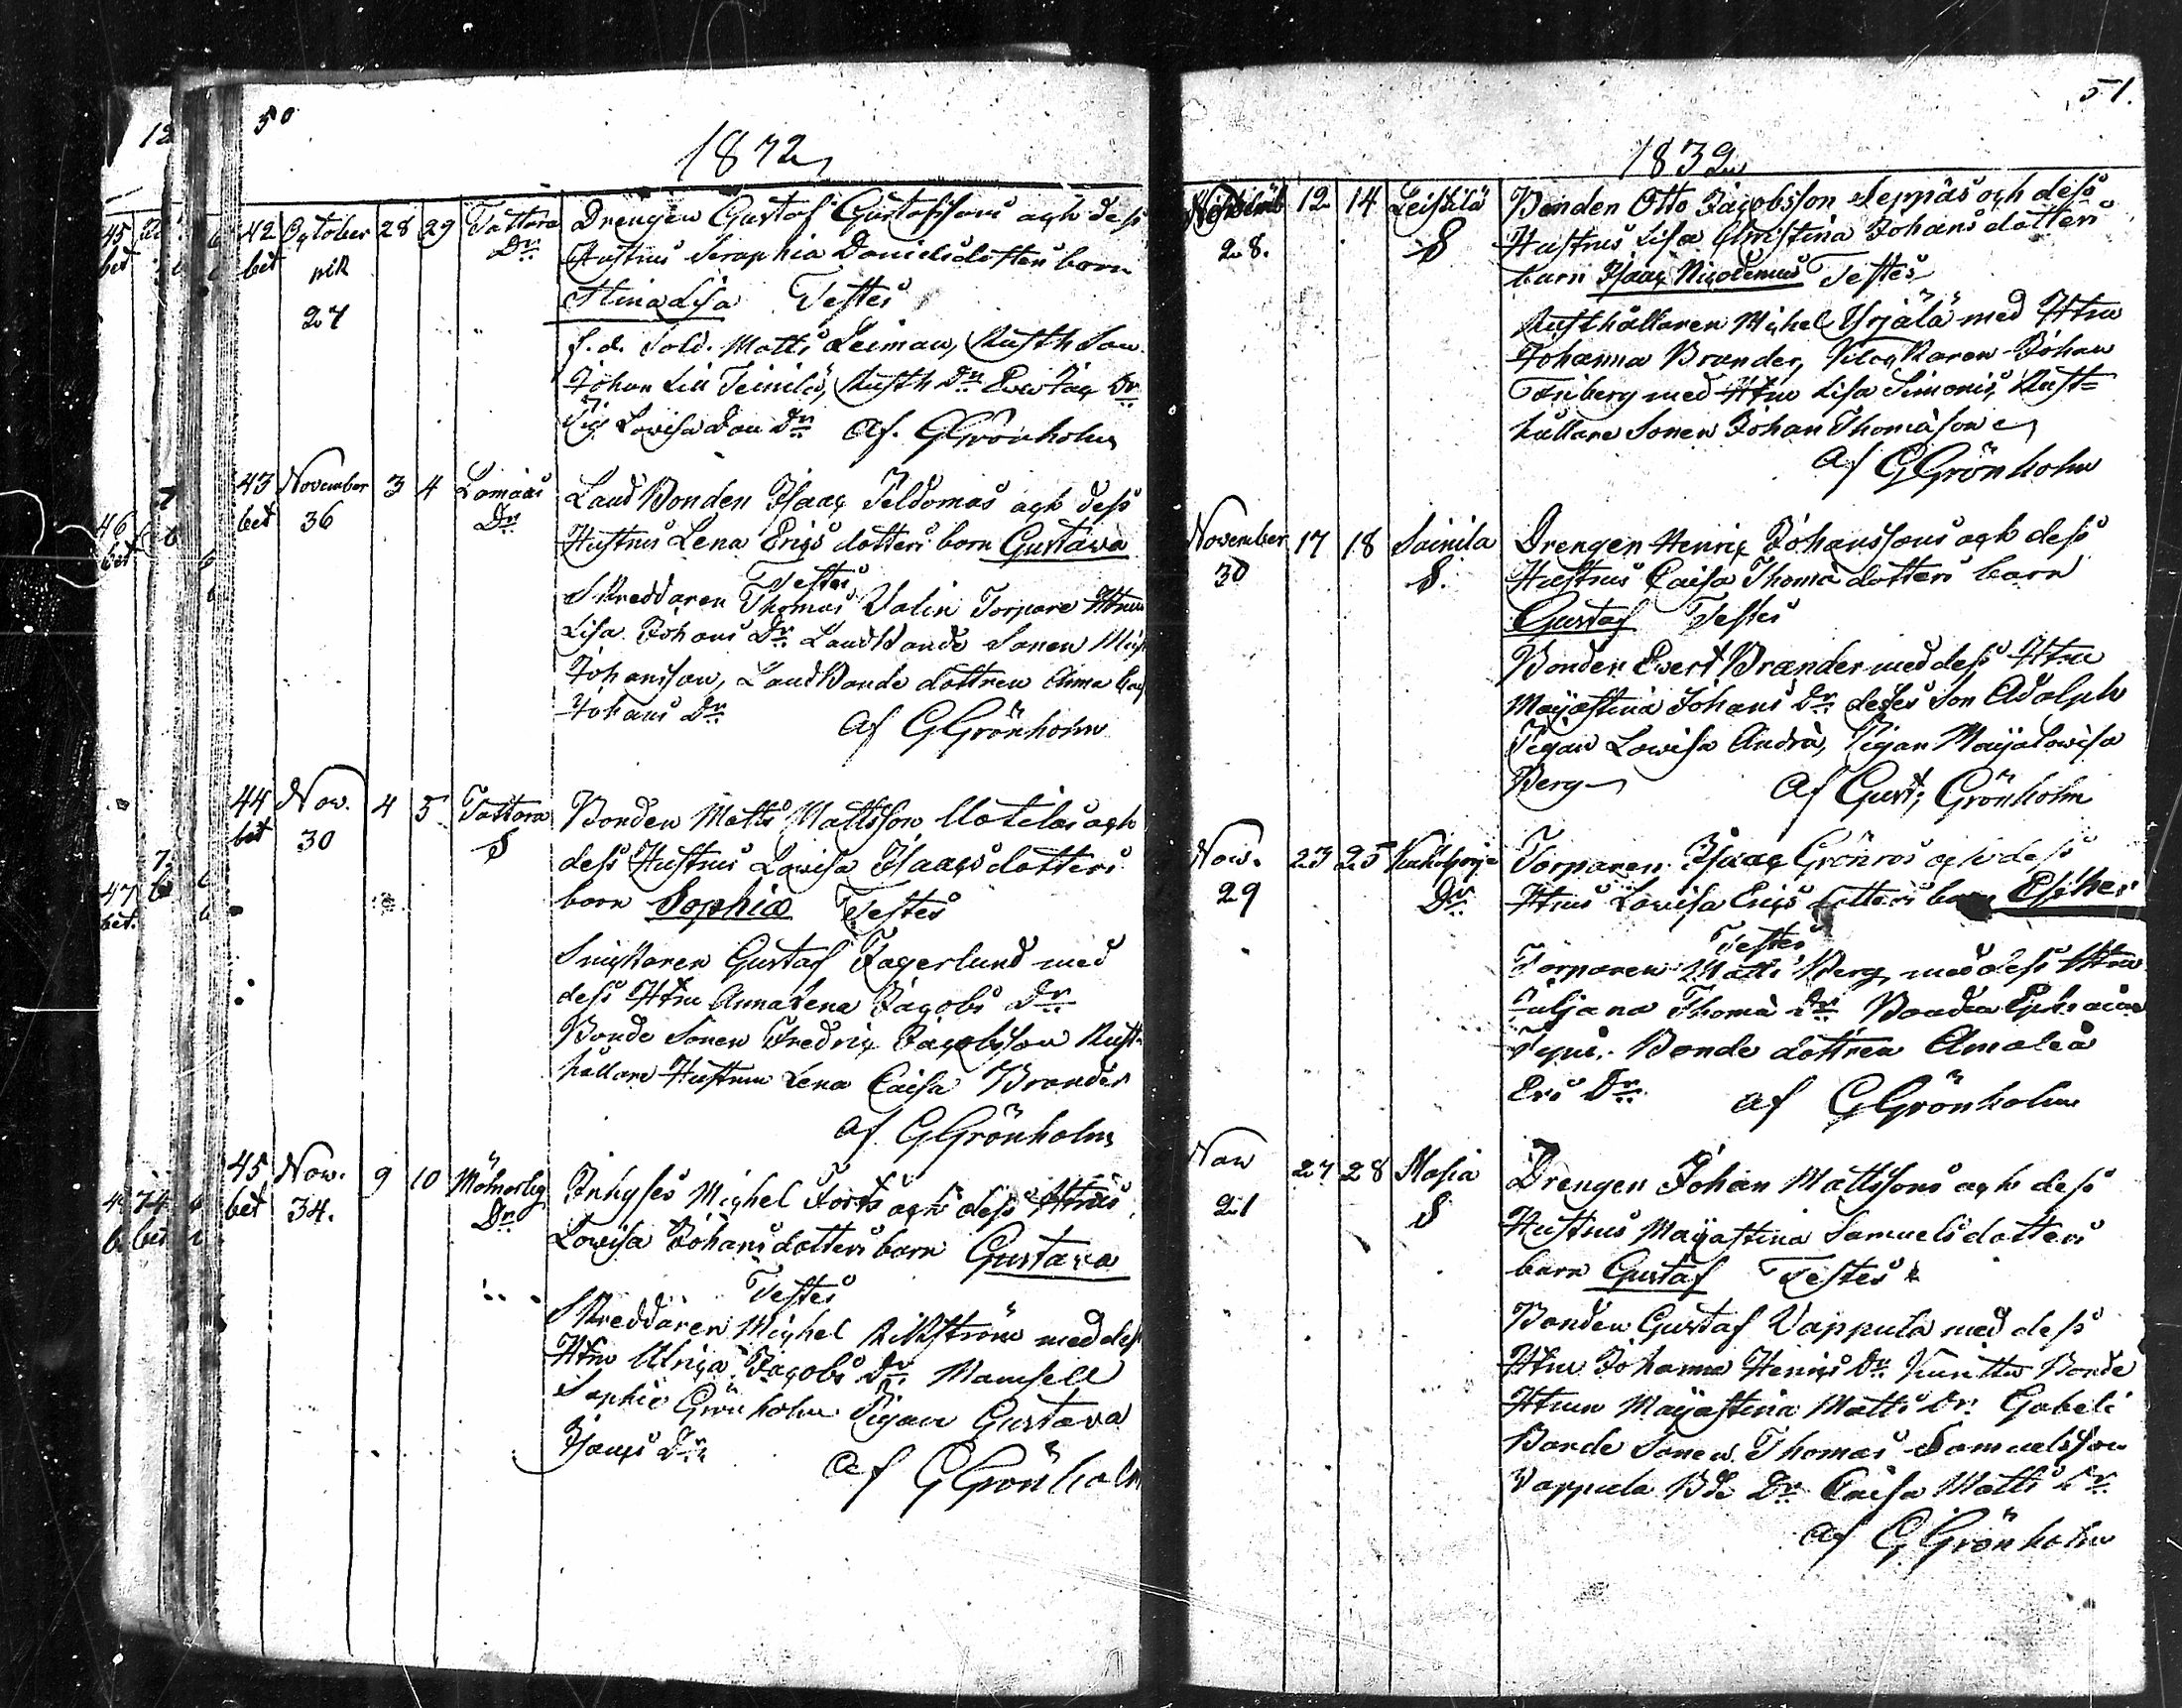 50
1872
42 October 28 29 Tattara Drengen Gustaf Gustafssons och dess
bet pik Dr Hustrus Seraphia Danielsdotters barn
27 Stina Lisa Testes
f.d. Sold. Matts Leiman, Rusth Son
Johan Lill Teinilä, Rusth Dr Eva Jac Dr
Pig Lovisa Dan Dr Af. GGrönholm
43 November 3 4 Lamais Land Bonden Isaac Peldomas och dess
bet 36 Dr Hustrus Lena Erics dotters barn Gustava
Testes
Skreddaren Thomas Valin Torpare Htrun
Lisa Johans Dr Landbonde Sonen Mich
Johansson, Landbonde dottren Anna
Johans Dr af GGrönholm
44 Nov. 4 5 Tattara Bonden Matts Mattsson Uotilas och
bet 30 S dess Hustrus Lovisa Isaacs dotters
barn Sophia Testes
Snickaren Gustaf Fagerlund med
dess Htru Anna Lena Jacobs Dr
Bonde Sonen Fredric Jacobsson Rust-
hållare Hustrun Lena Caisa Brander
af GGrönholm
45 Nov. 9 10 Inhyses Michel Forss och dess Htrus
bet 34. Dr Lovisa Johans dotters barn Gustava
Testes
Skreddaren Michel Wikström med dess
Htru Ulrica Jacobs Dr Mamsell
Sophie Grönholm Pigan Gustava
Isaacs Dr
af GGrönholm
51.
1832
12 14 Leistilä Bonden Otto Jacobsson Seppäs och dess
28. S Hustrus Lisa Christina Johans dotters
barn Isaac Nicodemus Testes
Rusthållaren Michel Yrjälä med Htru
Johanna Brander, Johan
Tornberg med Htru Lisa Simonis, Rust=
hållare Sonen Johan Thomasson
af GGrönholm
November 17 18 Sainila Drengen Henric Johanssons och dess
30 S. Hustrus Caisa Thomä dotters barn
Gustaf Testes
Bonden Evert Brander med dess Htru
Majastina Johans Dr deses Son Adolph
Pigan Lovisa Andrä, Pigan Maja Lovisa
Berg af Gust, Grönholm
Nov. 23 25 Torparen Isaac Grönros och dess
29 Dr Htrus Lovisa Erics dotters barn Esther
Testes
Torparen Matts Berg med dess Htru
Juliana Thomä Dr Bonden Ephraim
Bonde dottren Amalia
Eri Dr af GGrönholm
Nov 27 28 Masia Drengen Johan Mattssons och dess
21 S Hustrus Majastina Samuels dotters
barn Gustaf Testes
Bonden Gustaf Vappula med dess
Htru Johanna Henrics Dr Bonde
Htrun Majastina Matts Dr Gabeli
Bonde Sonen Thomas Samuelsson
Vappula Bde Dr Caisa Matts Dr
af GGrönholm